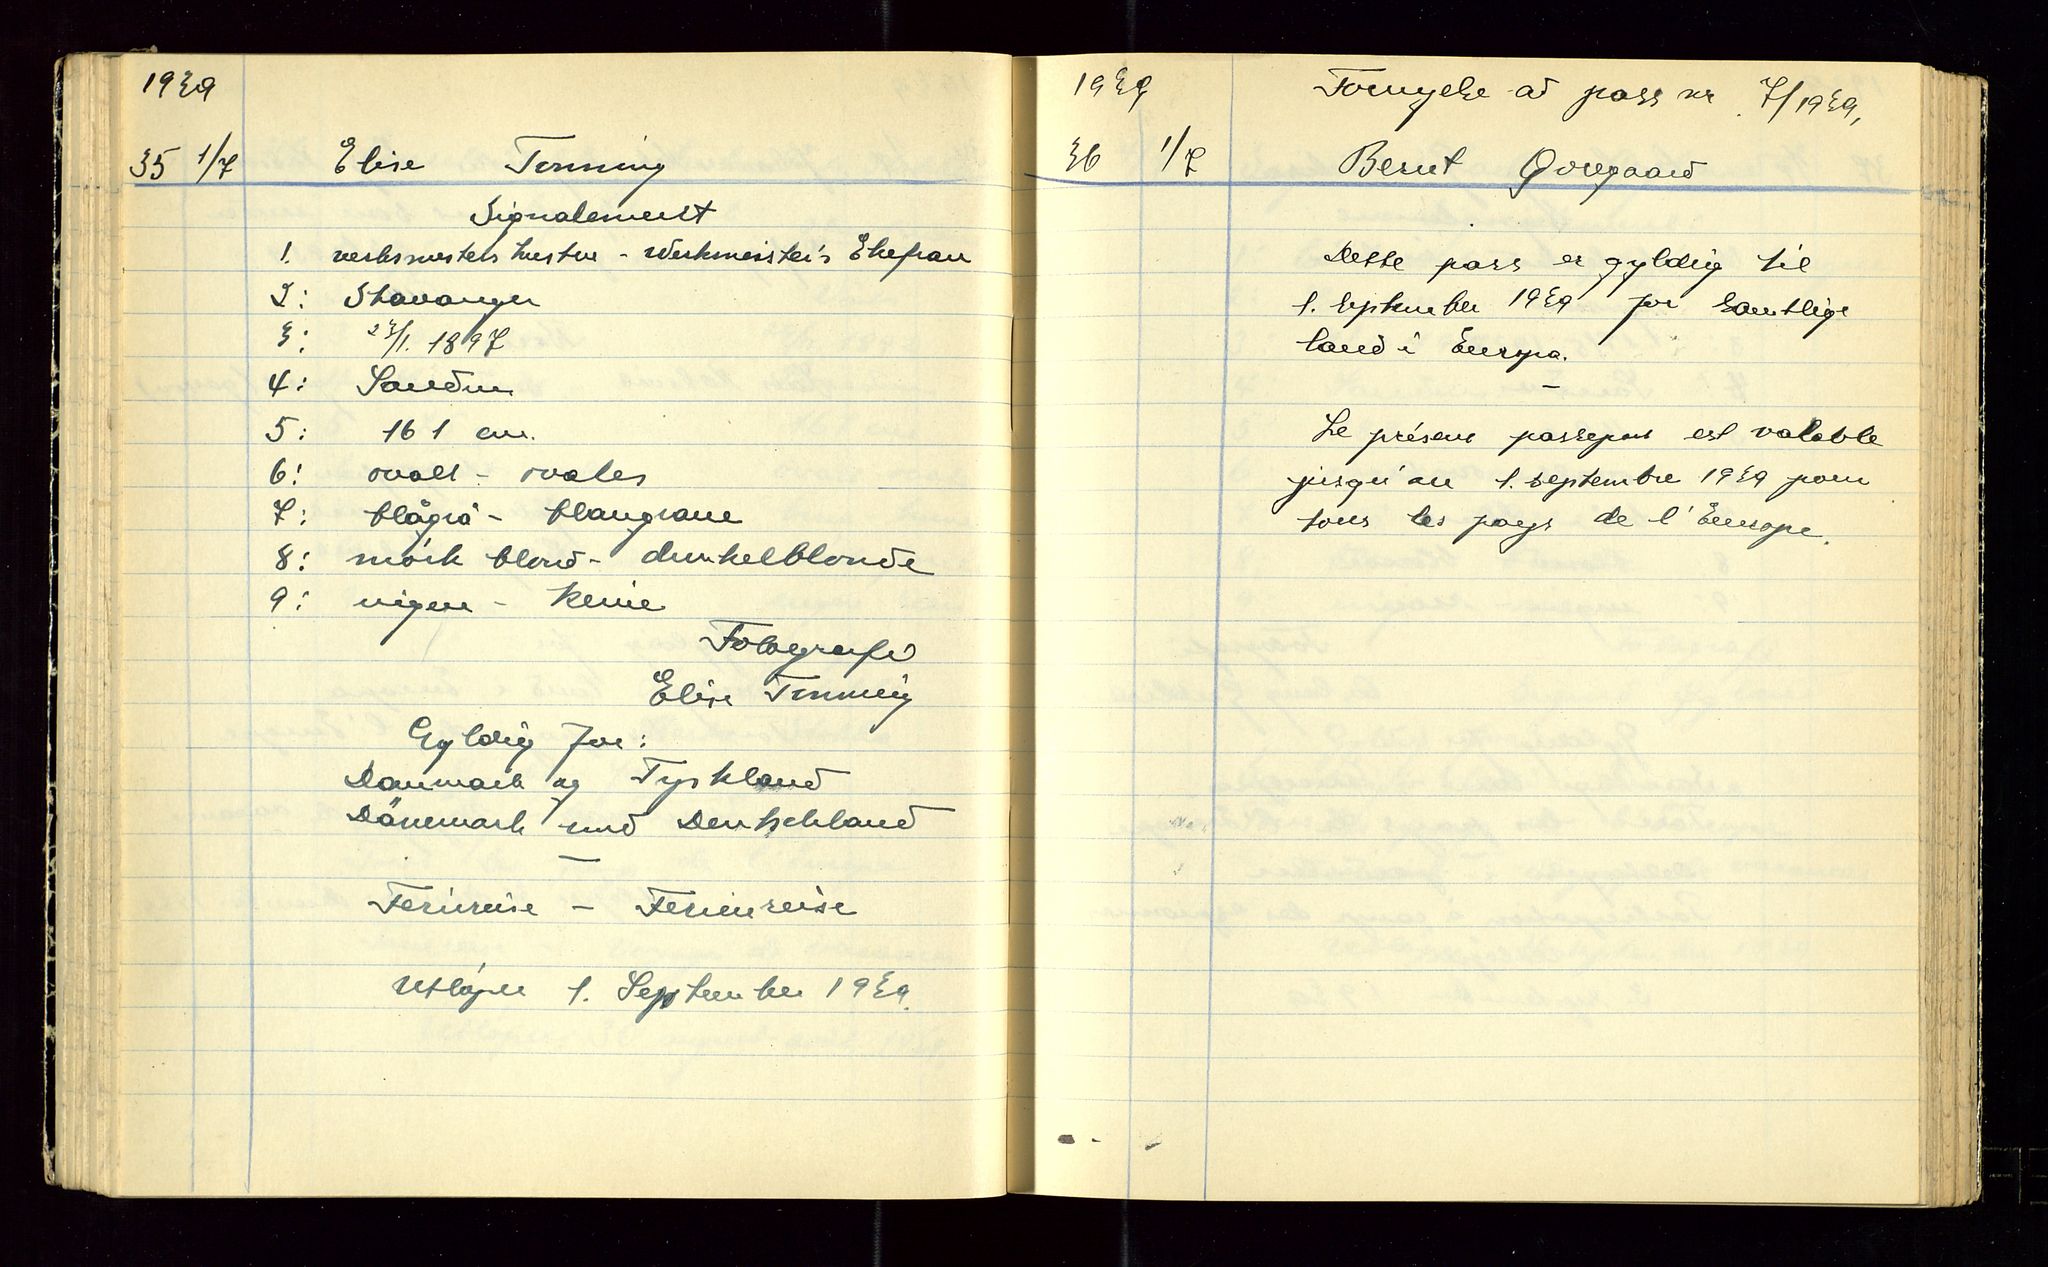 1939
35 1/7 Elise Tonning
Signalement
1. verksmesters hustru - Werkmeister's Ehefrau
2: Stavanger
3: 23/1. 1897
4: Sandnes
5: 161 cm.
6: ovalt - ovales
7: blågrå - blaugraue
8: mörk blond - dunkelblonde
9: ingen - keine
Fotografi
Elise Tonning
Gyldig for:
Danmark og Tyskland
Dänemark und Deutschland
—
Feriereise - Ferienreise
Utløper 1. September 1939.
1939 Fornyelse av pass nr. 7/1939,
36 1/7 Bernt Øvregaard
Dette pass er gyldig til
1. september 1939 for samtlige
land i Europa.
—
Le présent passeport est valable
jusqu'au 1. septembre 1939 pour
tous les pays de l'Europe.